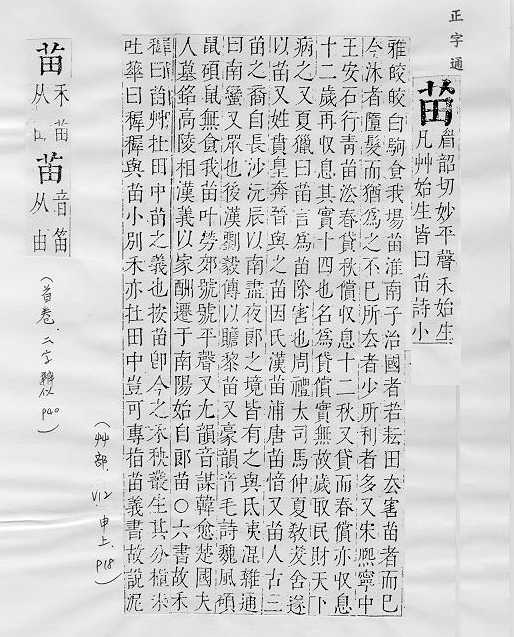 正字通
苗
眉韶切妙平聲禾始生
凡艸始生皆曰苗詩小
雅皎皎白駒食我場苗淮南子治國者若耘田去害苗者而巳
今沐者墮髮而猶爲之不巳所去者少所利者多又宋熙寧中
王安石行靑苗法春貸秋償收息十二秋又貸而春償亦收息
十二歲再收息其實十四也名爲貸償實無故歲取民財天下
病之又夏獵曰苗言爲苗除害也周禮大司馬仲夏敎茇舍遂
以苗又姓賁皇奔晉與之苗因氏漢苗浦唐苗愔又苗人古三
苗之裔自長沙沅辰以南盡夜郞之境皆有之與氐夷混雜通
曰南蠻又眾也後漢劉毅傳以贍黎苗又豪韻音毛詩魏風碩
鼠碩鼠無食我苗叶勞郊號號平聲又尤韻音謀韓愈楚國夫
人墓銘高陵相漢義以家酬遷于南陽始自郞苗○六書故禾
穉卽苗艸在田中苗之義也按苗卽今之禾秧叢生其分植禾
吐華曰穉穉與苗小別禾亦在田中豈可專指苗義書故說泥
(艸部. V.12 申上. P18)
苗
禾苗
从田
苗
音笛
从由
(首卷. 二字辨似 P40)